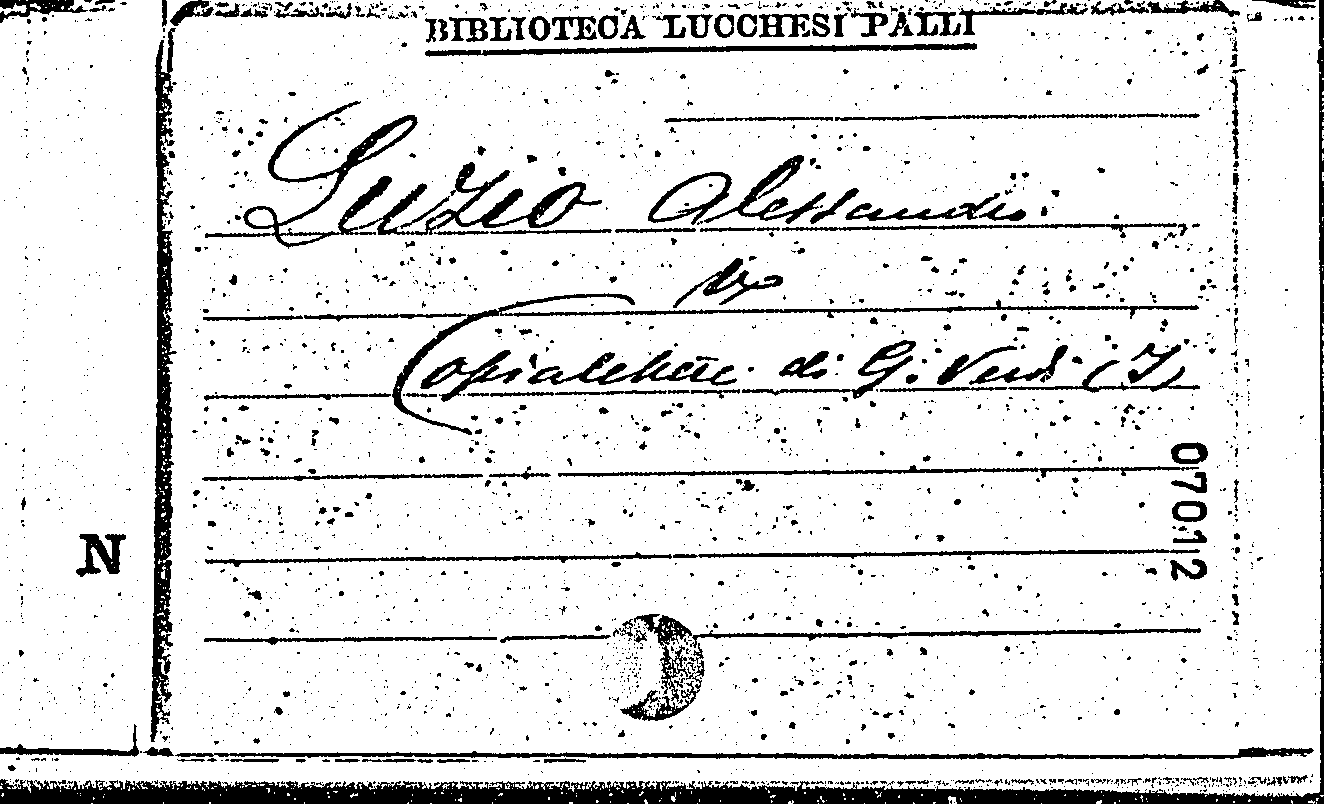 BIBLIOTECA LUCCHESI PALLI
Luzio Alessandro
Copialettere di G. Verdi (I)
07012
N